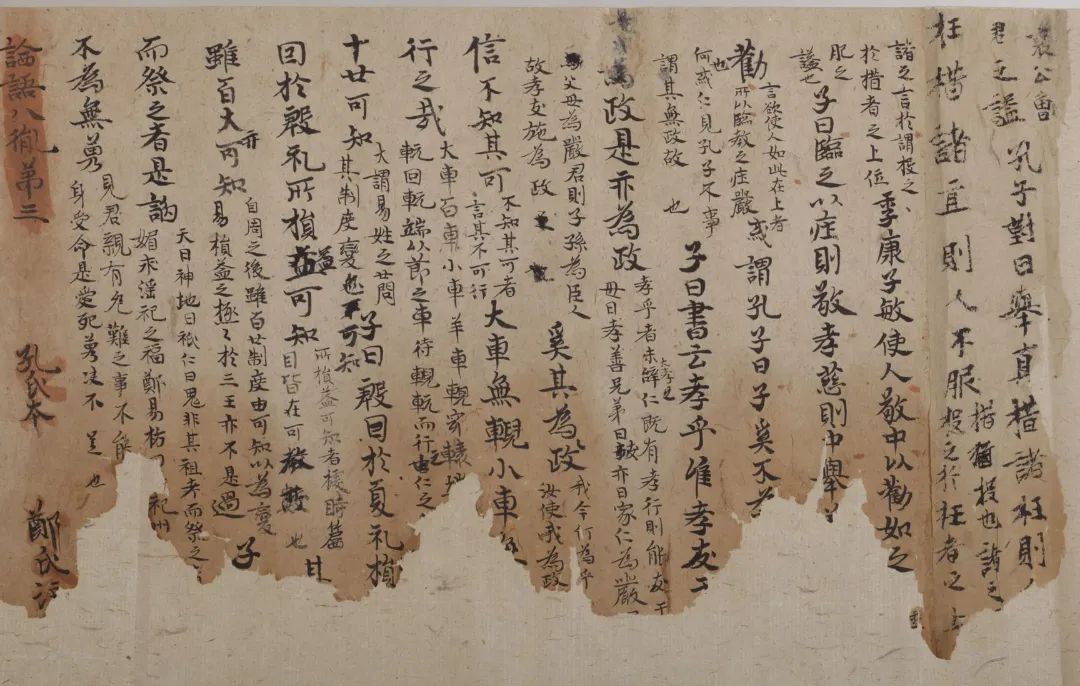 哀公魯
君之謚 孔子對曰舉直措諸枉則
枉措諸直則人不服 措猶投也諸之
投之於枉者之上
諸之言於謂投之
於措者之上位 季康子敏使人敬中以勸如之
服之
謚也 子曰臨之以症則敬孝慈則中舉
勸 言欲使人如此在上者
所以臨教之症嚴 或謂孔子曰子奚不
何或仁見孔子不事
謂其無政故也 子曰書云孝乎惟孝友
為政是亦為政 孝乎者
毋曰孝善兄弟曰 亦曰家仁為嚴
父母為嚴君則子孫為臣人
故孝友施為政 奚其為政 我今行為乎
汝使我為政
信不知其可 不知其可者
言其不可行 大車無輗小車
行之哉 大車百車小車羊車輗
軏回軏端以節之車待輗軏而行之
十廿可知 大謂易姓之廿問
其制度變 子曰殷因於夏礼損
因於殷礼所損益可知 所損益可知者
目皆在可 也 廿
雖百大亦可知 自周之後雖百廿制度由可知以為變
易損益之極之於三王亦不是過 子
而祭之者是諂 天曰神地曰祇仁曰鬼非其祖考而祭之
媚求淫祀之福鄭易枋 祀州
不為無勇 見君親有危難之事不能
身受命是愛死勇决不足也
論語八佾第三 孔氏本 鄭氏注